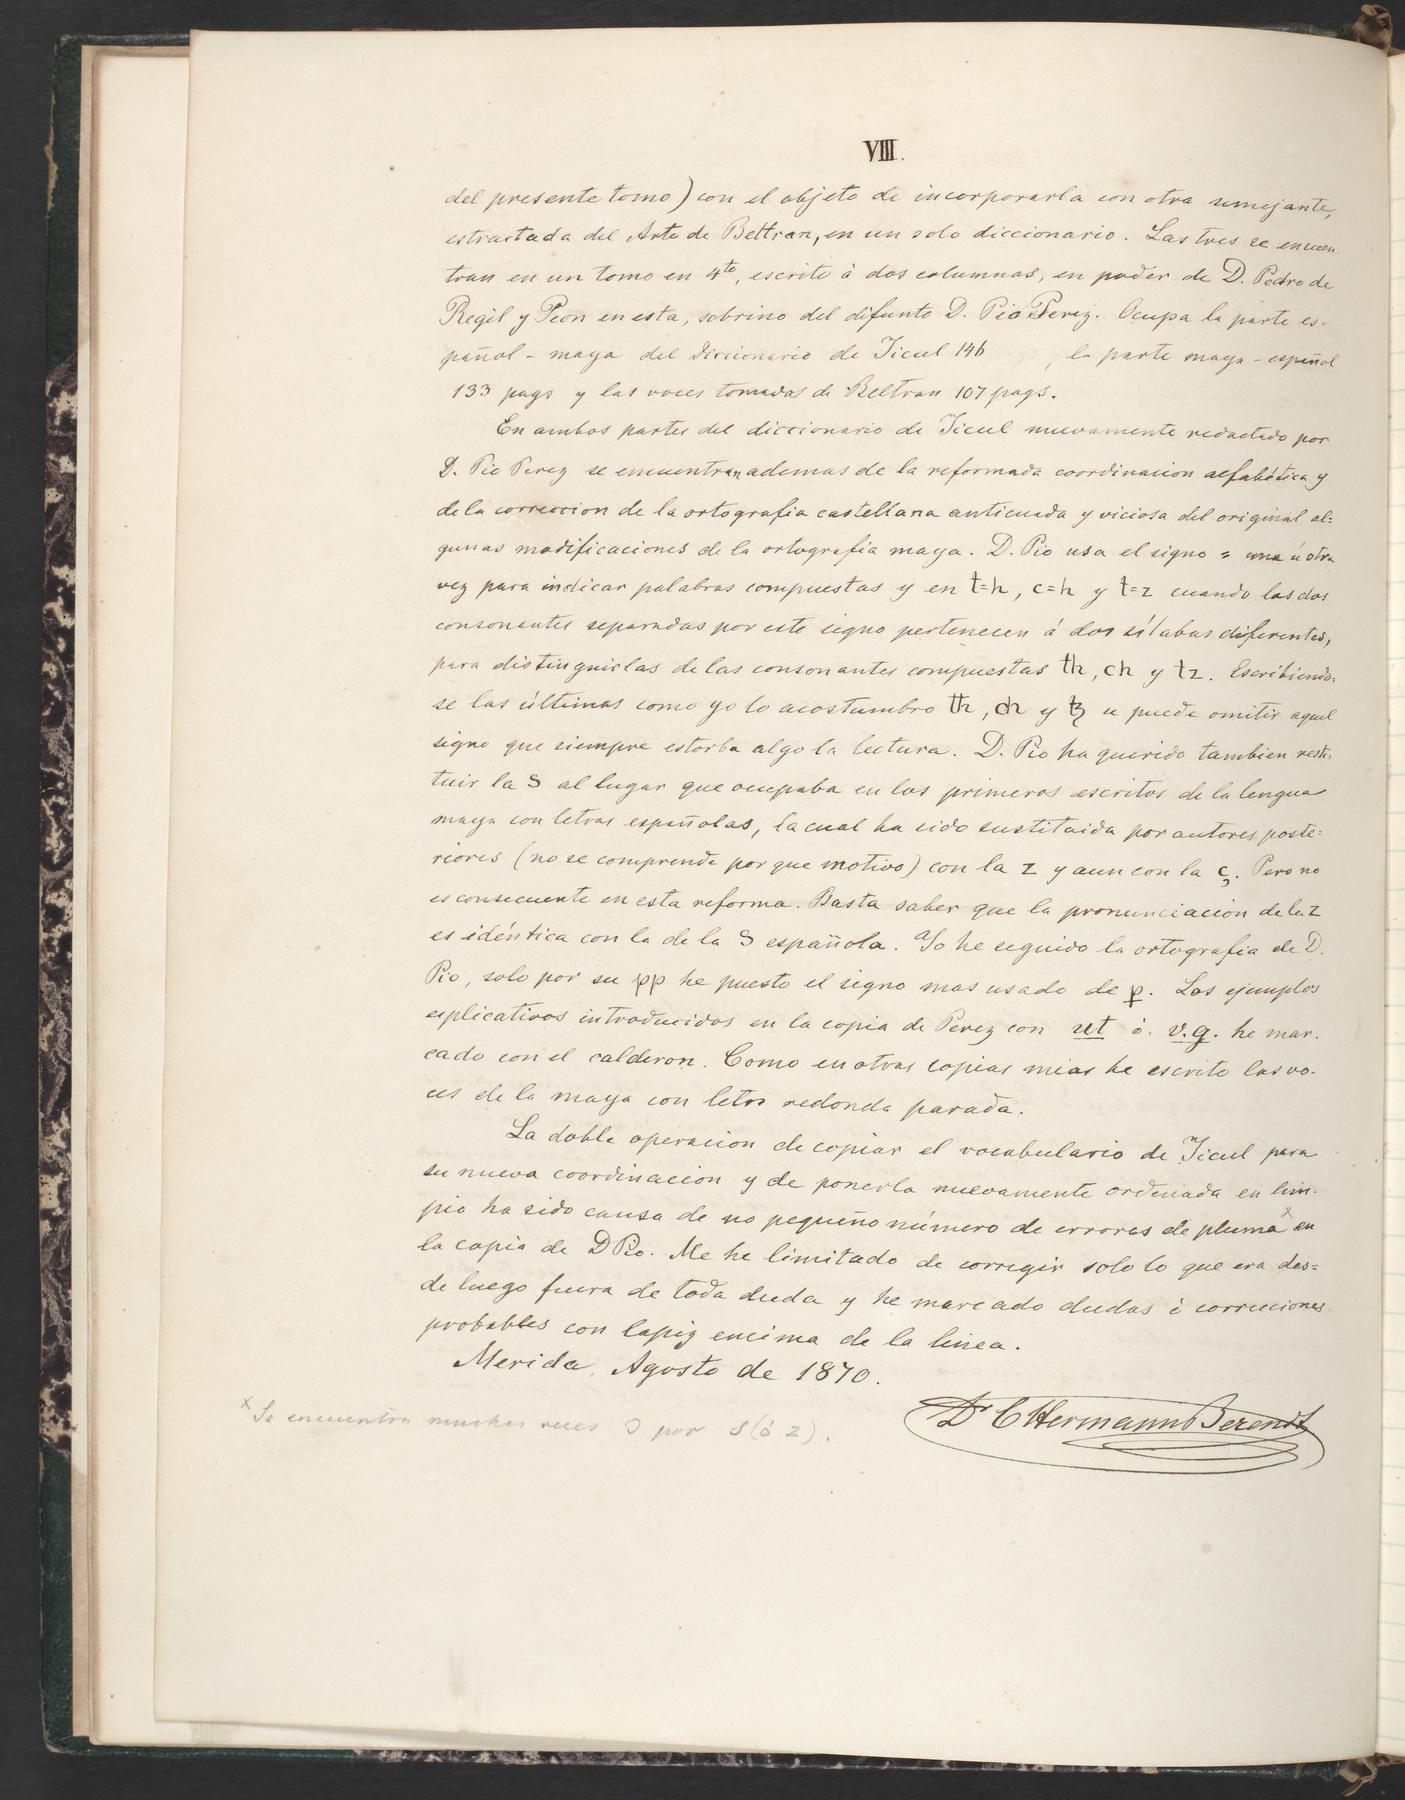 VIII.
del presente tomo) con el objeto de incorporarla con otra semejante,
estractada del Arte de Beltran, en un solo diccionario. Las tres se encuen-
tran en un tomo en 4to, escrito à dos columnas, en poder de D. Pedro de
Regil y Peon en esta, sobrino del difunto D. Pio Perez. Ocupa la parte es=
pañol - maya del Diccionario de Ticul 146 , la parte maya - español
133 pags y las voces tomadas de Beltran 107 pags.
En ambas partes del diccionario de Ticul nuevamente redactado por
D. Pio Perez se encuentran ademas de la reformada coordinacion alfabética y
de la correccion de la ortografia castellana anticuada y viciosa del original al=
gunas modificaciones de la ortografia maya. D. Pio usa el signo = una ú otra
vez para indicar palabras compuestas y en t=h, c=h y t=z cuando las dos
consonantes separadas por este signo pertenecen á dos sílabas diferentes,
para distinguirlas de las consonantes compuestas th, ch y tz. Escribiendo=
se las últimas como yo lo acostumbro tħ, cħ y tȥ se puede omitir aquel
signo que siempre estorba algo la lectura. D. Pio ha querido tambien resti-
tuir la S al lugar que ocupaba en los primeros escritos de la lengua
maya con letras españolas, la cual ha sido sustituida por autores poste=
riores (no se comprende por que motivo) con la z y aun con la ç. Pero no
es consecuente en esta reforma. Basta saber que la pronunciación de la z
es idéntica con la de la S española. Yo he seguido la ortografia de D.
Pio, solo por su pp he puesto el signo mas usado de ꝑ. Los ejemplos
esplicativos introducidos en la copia de Perez con ut ó. v.g. he mar-
cado con el calderon. Como en otras copias mias he escrito las vo-
ces de la maya con letra redonda parada.
La doble operacion de copiar el vocabulario de Ticul para
su nueva coordinacion y de ponerla nuevamente ordenada en lim-
pio ha sido causa de no pequeño número de errores de pluma x en
la copia de D Pio. Me he limitado de corregir solo lo que era des=
de luego fuera de toda duda y he marcado dudas ó correcciones
probables con lapiz encima de la linea.
Merida, Agosto de 1870.
Dr C Hermann Berendt
x Se encuentra muchas veces Ɔ por S (ó z).